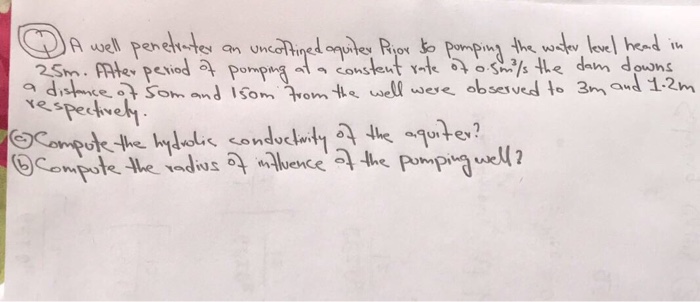 ① A well penetrates an unconfined aquifer Prior to pomping the water level head in
25m. After period of pomping at a constant rate of 0.5m³/s the dam downs
a distance of 50m and 150m from the well were observed to 3m and 1.2m
respectively.
ⓐ Compute the hydrolic conductivity of the aquifer?
ⓑ Compute the radius of influence of the pomping well?